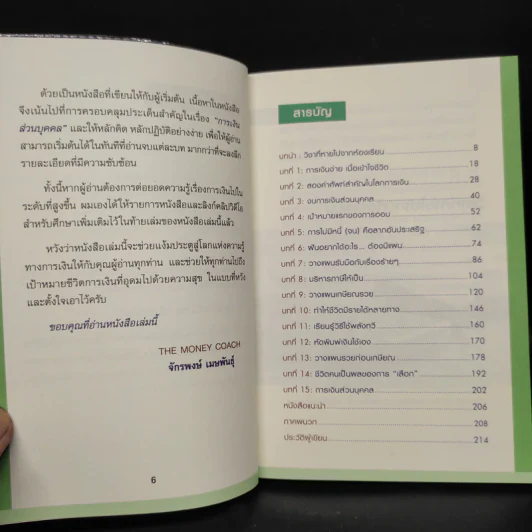 ด้วยเป็นหนังสือที่เขียนให้กับผู้เริ่มต้น เนื้อหาในหนังสือ
จึงเน้นไปที่การครอบคลุมประเด็นสำคัญในเรื่อง "การเงิน
ส่วนบุคคล" และให้หลักคิด หลักปฏิบัติอย่างง่าย เพื่อให้ผู้อ่าน
สามารถเริ่มต้นได้ในทันทีที่อ่านจบแต่ละบท มากกว่าที่จะลงลึก
รายละเอียดที่มีความซับซ้อน
ทั้งนี้หากผู้อ่านต้องการต่อยอดความรู้เรื่องการเงินไปใน
ระดับที่สูงขึ้น ผมเองได้ให้รายการหนังสือและลิงก์คลิปวิดีโอ
สำหรับศึกษาเพิ่มเติมไว้ในท้ายเล่มของหนังสือเล่มนี้แล้ว
หวังว่าหนังสือเล่มนี้จะช่วยแง้มประตูสู่โลกแห่งความรู้
ทางการเงินให้กับคุณผู้อ่านทุกท่าน และช่วยให้ทุกท่านไปถึง
เป้าหมายชีวิตการเงินที่อุดมไปด้วยความสุข ในแบบที่หวัง
และตั้งใจเอาไว้ครับ
ขอบคุณที่อ่านหนังสือเล่มนี้
THE MONEY COACH
จักรพงษ์ เมษพันธุ์
6
สารบัญ
บทนำ : วิชาที่หายไปจากห้องเรียน 8
บทที่ 1: การเงินง่าย เมื่อเข้าใจชีวิต 18
บทที่ 2: สองคำศัพท์สำคัญในโลกการเงิน 28
บทที่ 3: งบการเงินส่วนบุคคล 40
บทที่ 4: เป้าหมายแรกของการออม 52
บทที่ 5: การไม่มีหนี้ (จน) คือลาภอันประเสริฐ 62
บทที่ 6: ฝันอยากได้อะไร... ต้องมีแผน 74
บทที่ 7: วางแผนรับมือกับเรื่องร้ายๆ 86
บทที่ 8: บริหารภาษีให้เป็น 104
บทที่ 9: วางแผนเกษียณรวย 120
บทที่ 10: ทำให้ชีวิตมีรายได้หลายทาง 146
บทที่ 11: เรียนรู้วิธีใช้พลังทวี 160
บทที่ 12: หัดพิมพ์เงินใช้เอง 170
บทที่ 13: วางแผนรวยก่อนเกษียณ 178
บทที่ 14: ชีวิตคนเป็นผลของการ "เลือก" 192
บทที่ 15: การเงินส่วนบุคคล 202
หนังสือแนะนำ 206
ภาคผนวก 208
ประวัติผู้เขียน 214